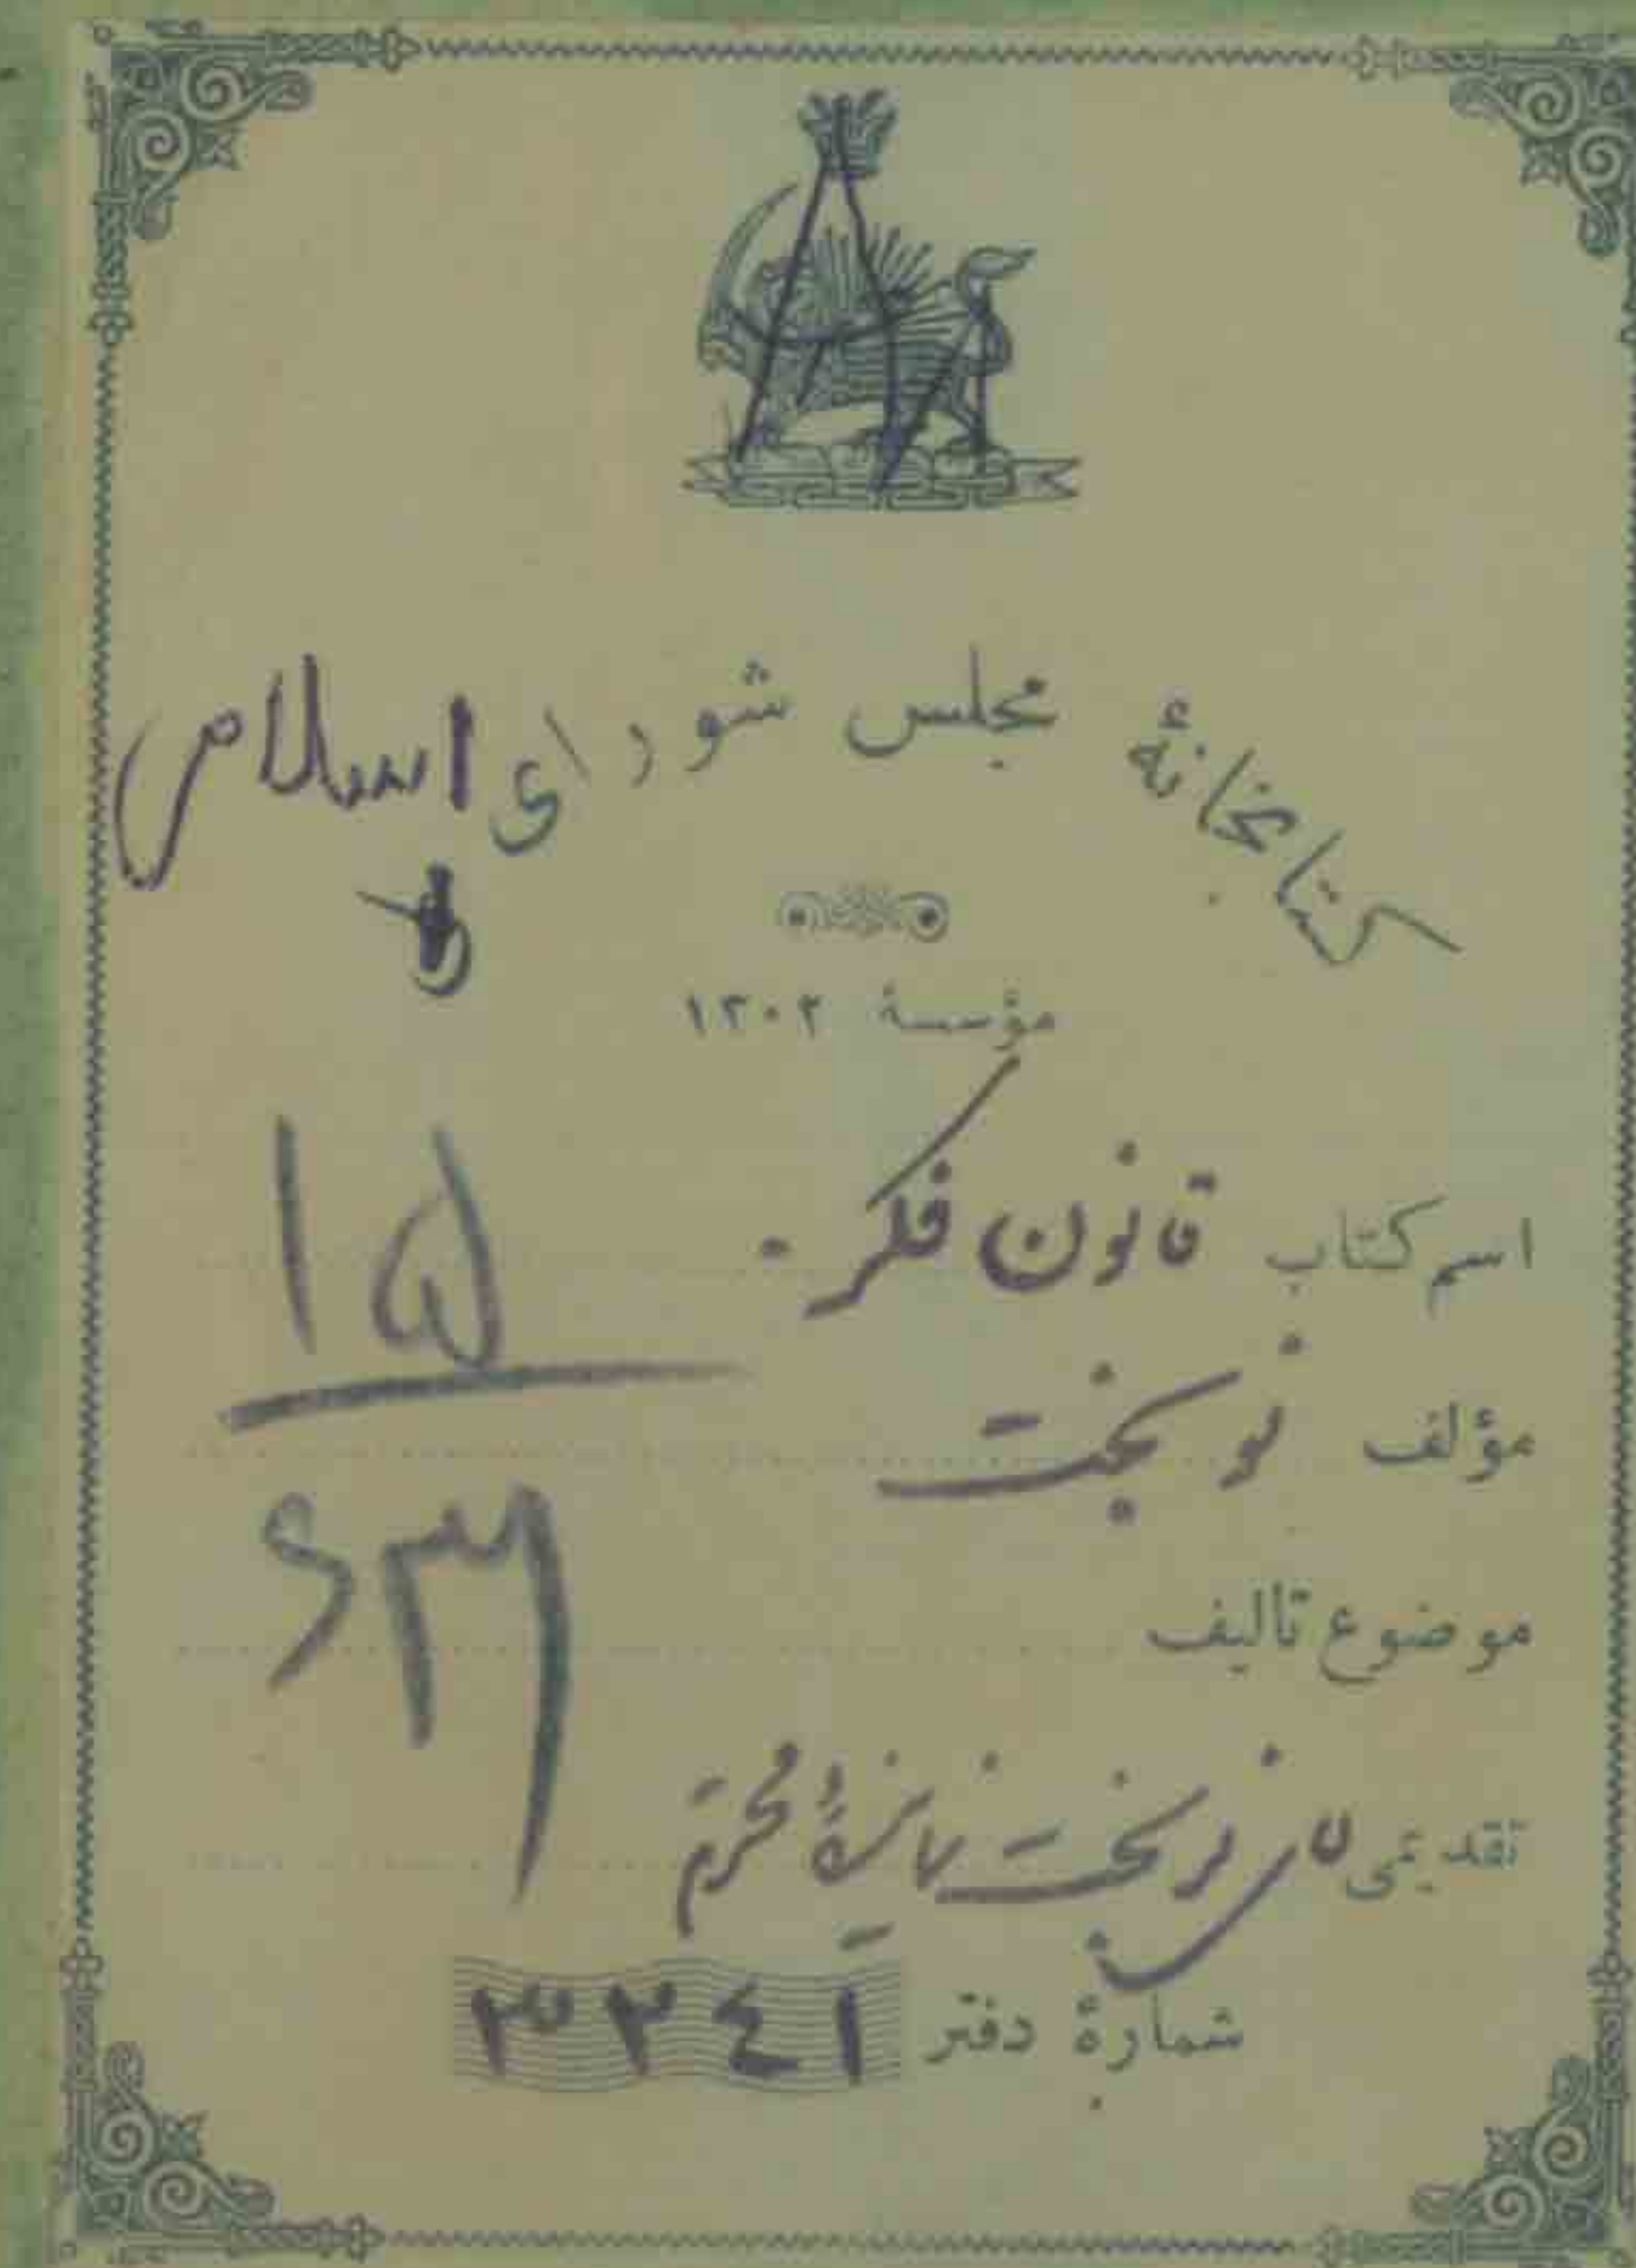 کتابخانهٔ مجلس شورای اسلامی
مؤسسهٔ ۱۳۰۲
اسم کتاب قانون فکر.
مؤلف نوبخت
موضوع تالیف
تقدیمی نوبخت نمایندهٔ محترم
شمارهٔ دفتر ۳۲٤۱
۱۵
۶۳۹